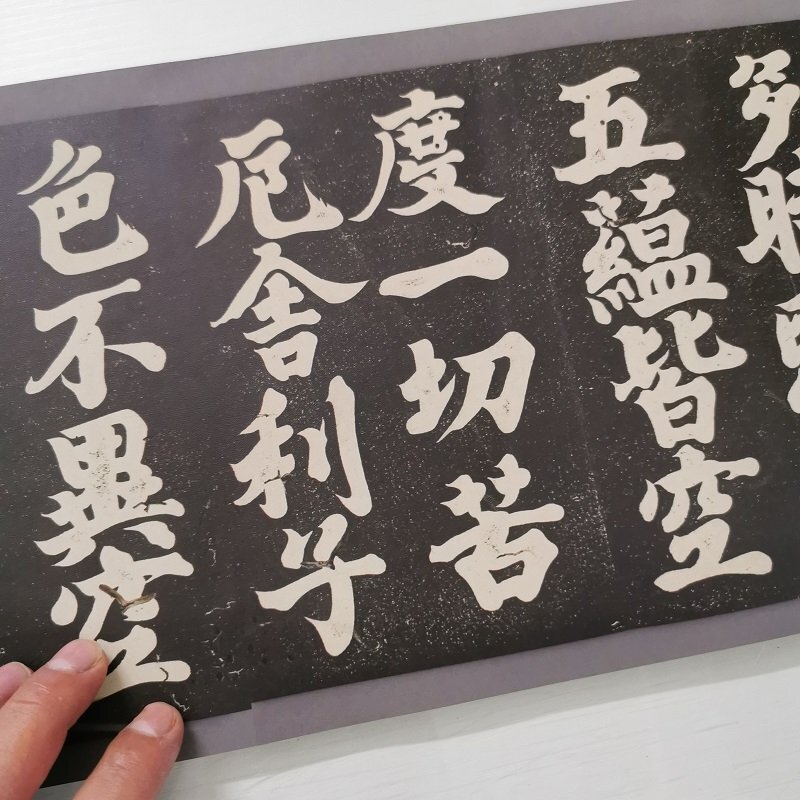 多時
五蘊皆空
度一切苦
厄舍利子
色不異空